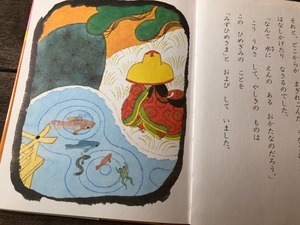 それは、どこからか まぎれ こんだ
はなしかけたり なさるのでした。
「なんて 水に えんの ある おかたなのだろう。」
こう うわさ して、やしきの ものは
この ひめぎみの ことを
「みずひめさま」と および して いました。